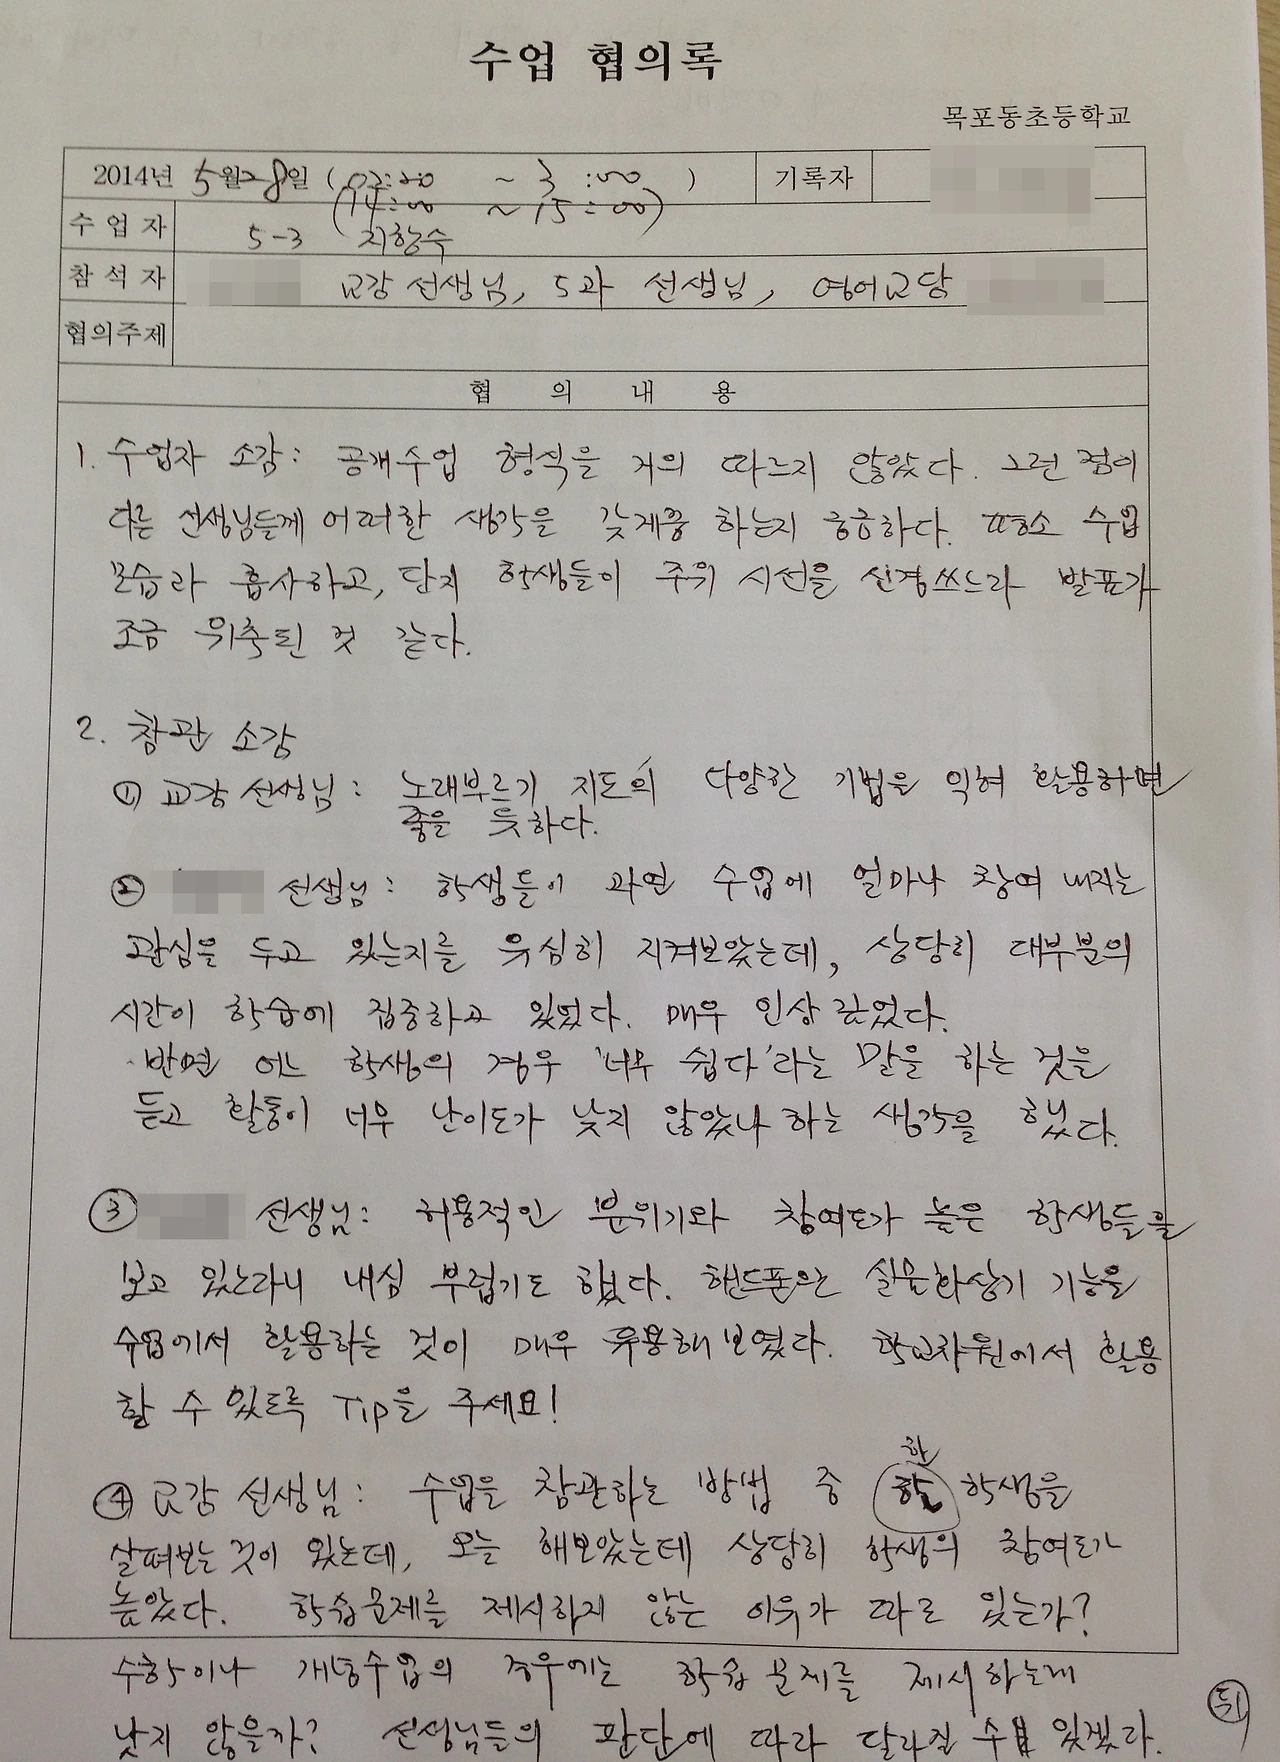 수업 협의록
목포동초등학교
2014년 5월28일 ( 02:00 ~ 3 :00 ) 기록자
(14:00 ~ 15:00)
수 업 자 5-3 지향수
참 석 자 교감 선생님, 5과 선생님, 영어교담
협의주제
협 의 내 용
1. 수업자 소감: 공개수업 형식을 거의 따르지 않았다. 그런 점이
다른 선생님들께 어떠한 생각을 갖게끔 하는지 궁금하다. 평소 수업
모습과 흡사하고, 단지 학생들이 주위 시선을 신경쓰느라 발표가
조금 위축된 것 같다.
2. 참관 소감
① 교감 선생님: 노래부르기 지도의 다양한 기법을 익혀 활용하면
좋을 듯하다.
② 선생님: 학생들이 과연 수업에 얼마나 참여 내지는
관심을 두고 있는지를 유심히 지켜보았는데, 상당히 대부분의
시간이 학습에 집중하고 있었다. 매우 인상 깊었다.
반면 어느 학생의 경우 '너무 쉽다'라는 말을 하는 것을
듣고 활동이 너무 난이도가 낮지 않았나 하는 생각을 했다.
③ 선생님: 허용적인 분위기와 참여도가 높은 학생들을
보고 있노라니 내심 부럽기도 했다. 핸드폰의 실물화상기 기능을
수업에서 활용하는 것이 매우 유용해 보였다. 학교차원에서 활용
할 수 있도록 Tip을 주세요!
④ 교감 선생님: 수업을 참관하는 방법 중 한 학생을
살펴보는 것이 있는데, 오늘 해보았는데 상당히 학생의 참여도가
높았다. 학습문제를 제시하지 않는 이유가 따로 있는가?
수학이나 개념수업의 경우에는 학습 문제를 제시하는게
낫지 않을까? 선생님들의 판단에 따라 달라질 수 있겠다.
뒤